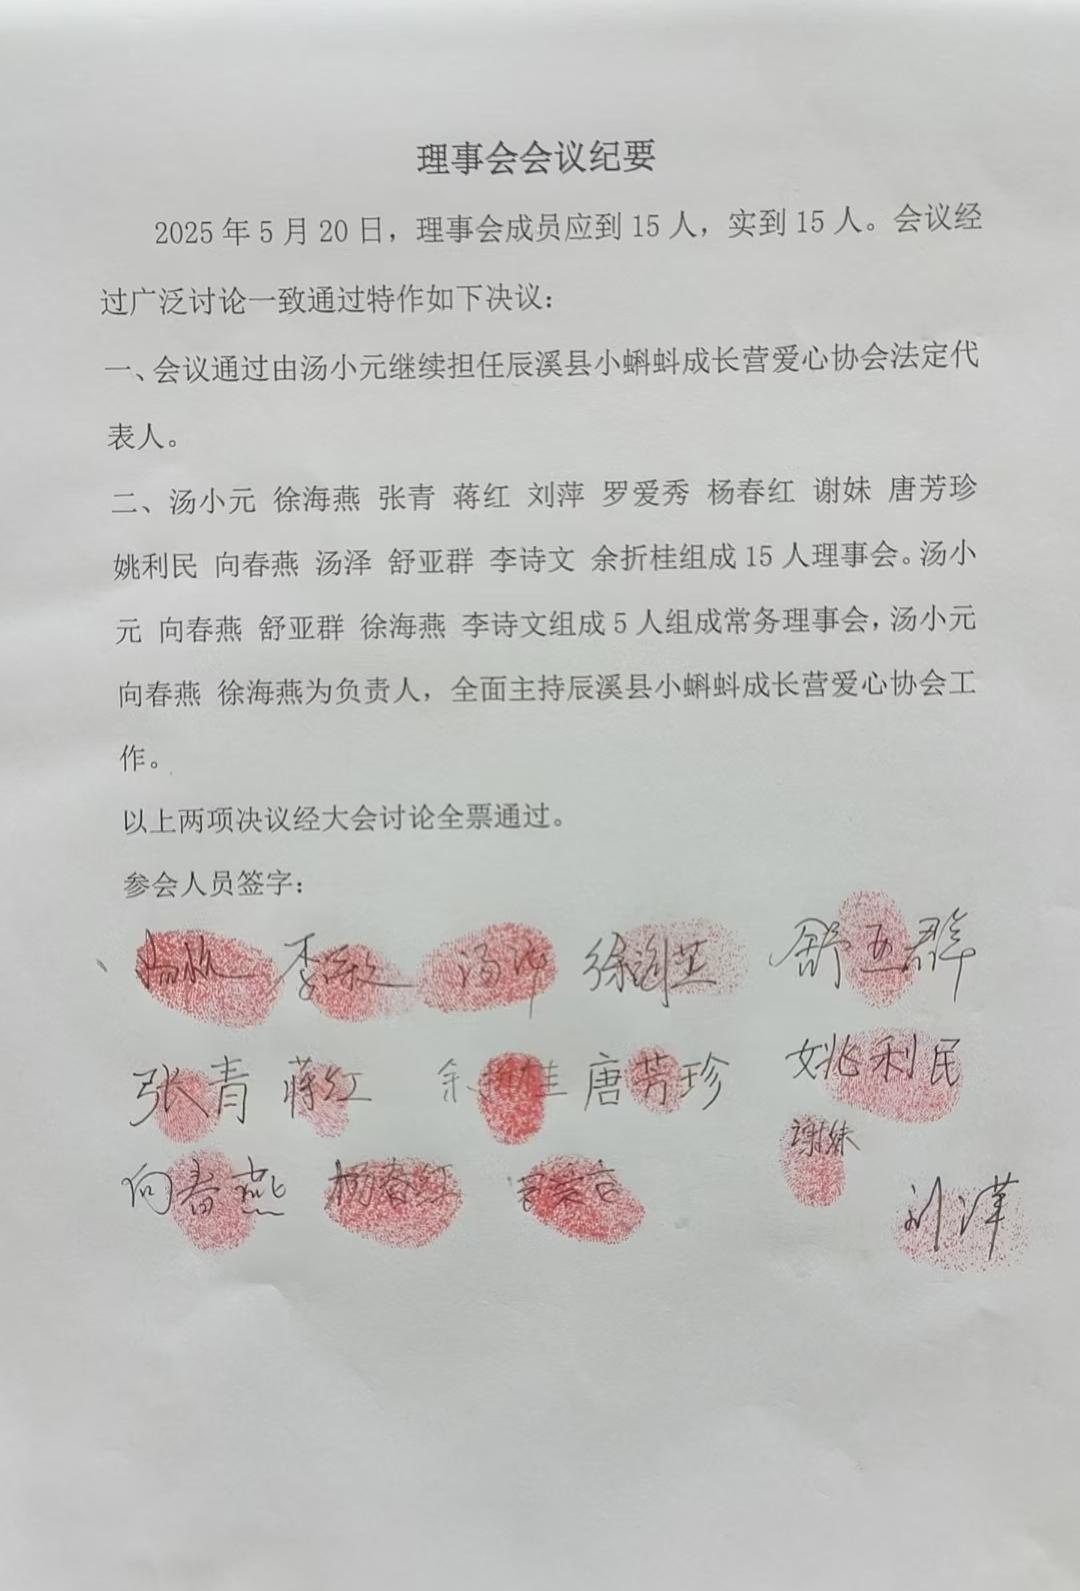 理事会会议纪要
2025年5月20日，理事会成员应到15人，实到15人。会议经
过广泛讨论一致通过特作如下决议：
一、会议通过由汤小元继续担任辰溪县小蝌蚪成长营爱心协会法定代
表人。
二、汤小元 徐海燕 张青 蒋红 刘萍 罗爱秀 杨春红 谢妹 唐芳珍
姚利民 向春燕 汤泽 舒亚群 李诗文 余折桂组成15人理事会。汤小
元 向春燕 舒亚群 徐海燕 李诗文组成5人组成常务理事会，汤小元
向春燕 徐海燕为负责人，全面主持辰溪县小蝌蚪成长营爱心协会工
作。
以上两项决议经大会讨论全票通过。
参会人员签字：
舒亚群
张青 蒋红 唐芳珍 姚利民
谢妹
向春燕 杨春红